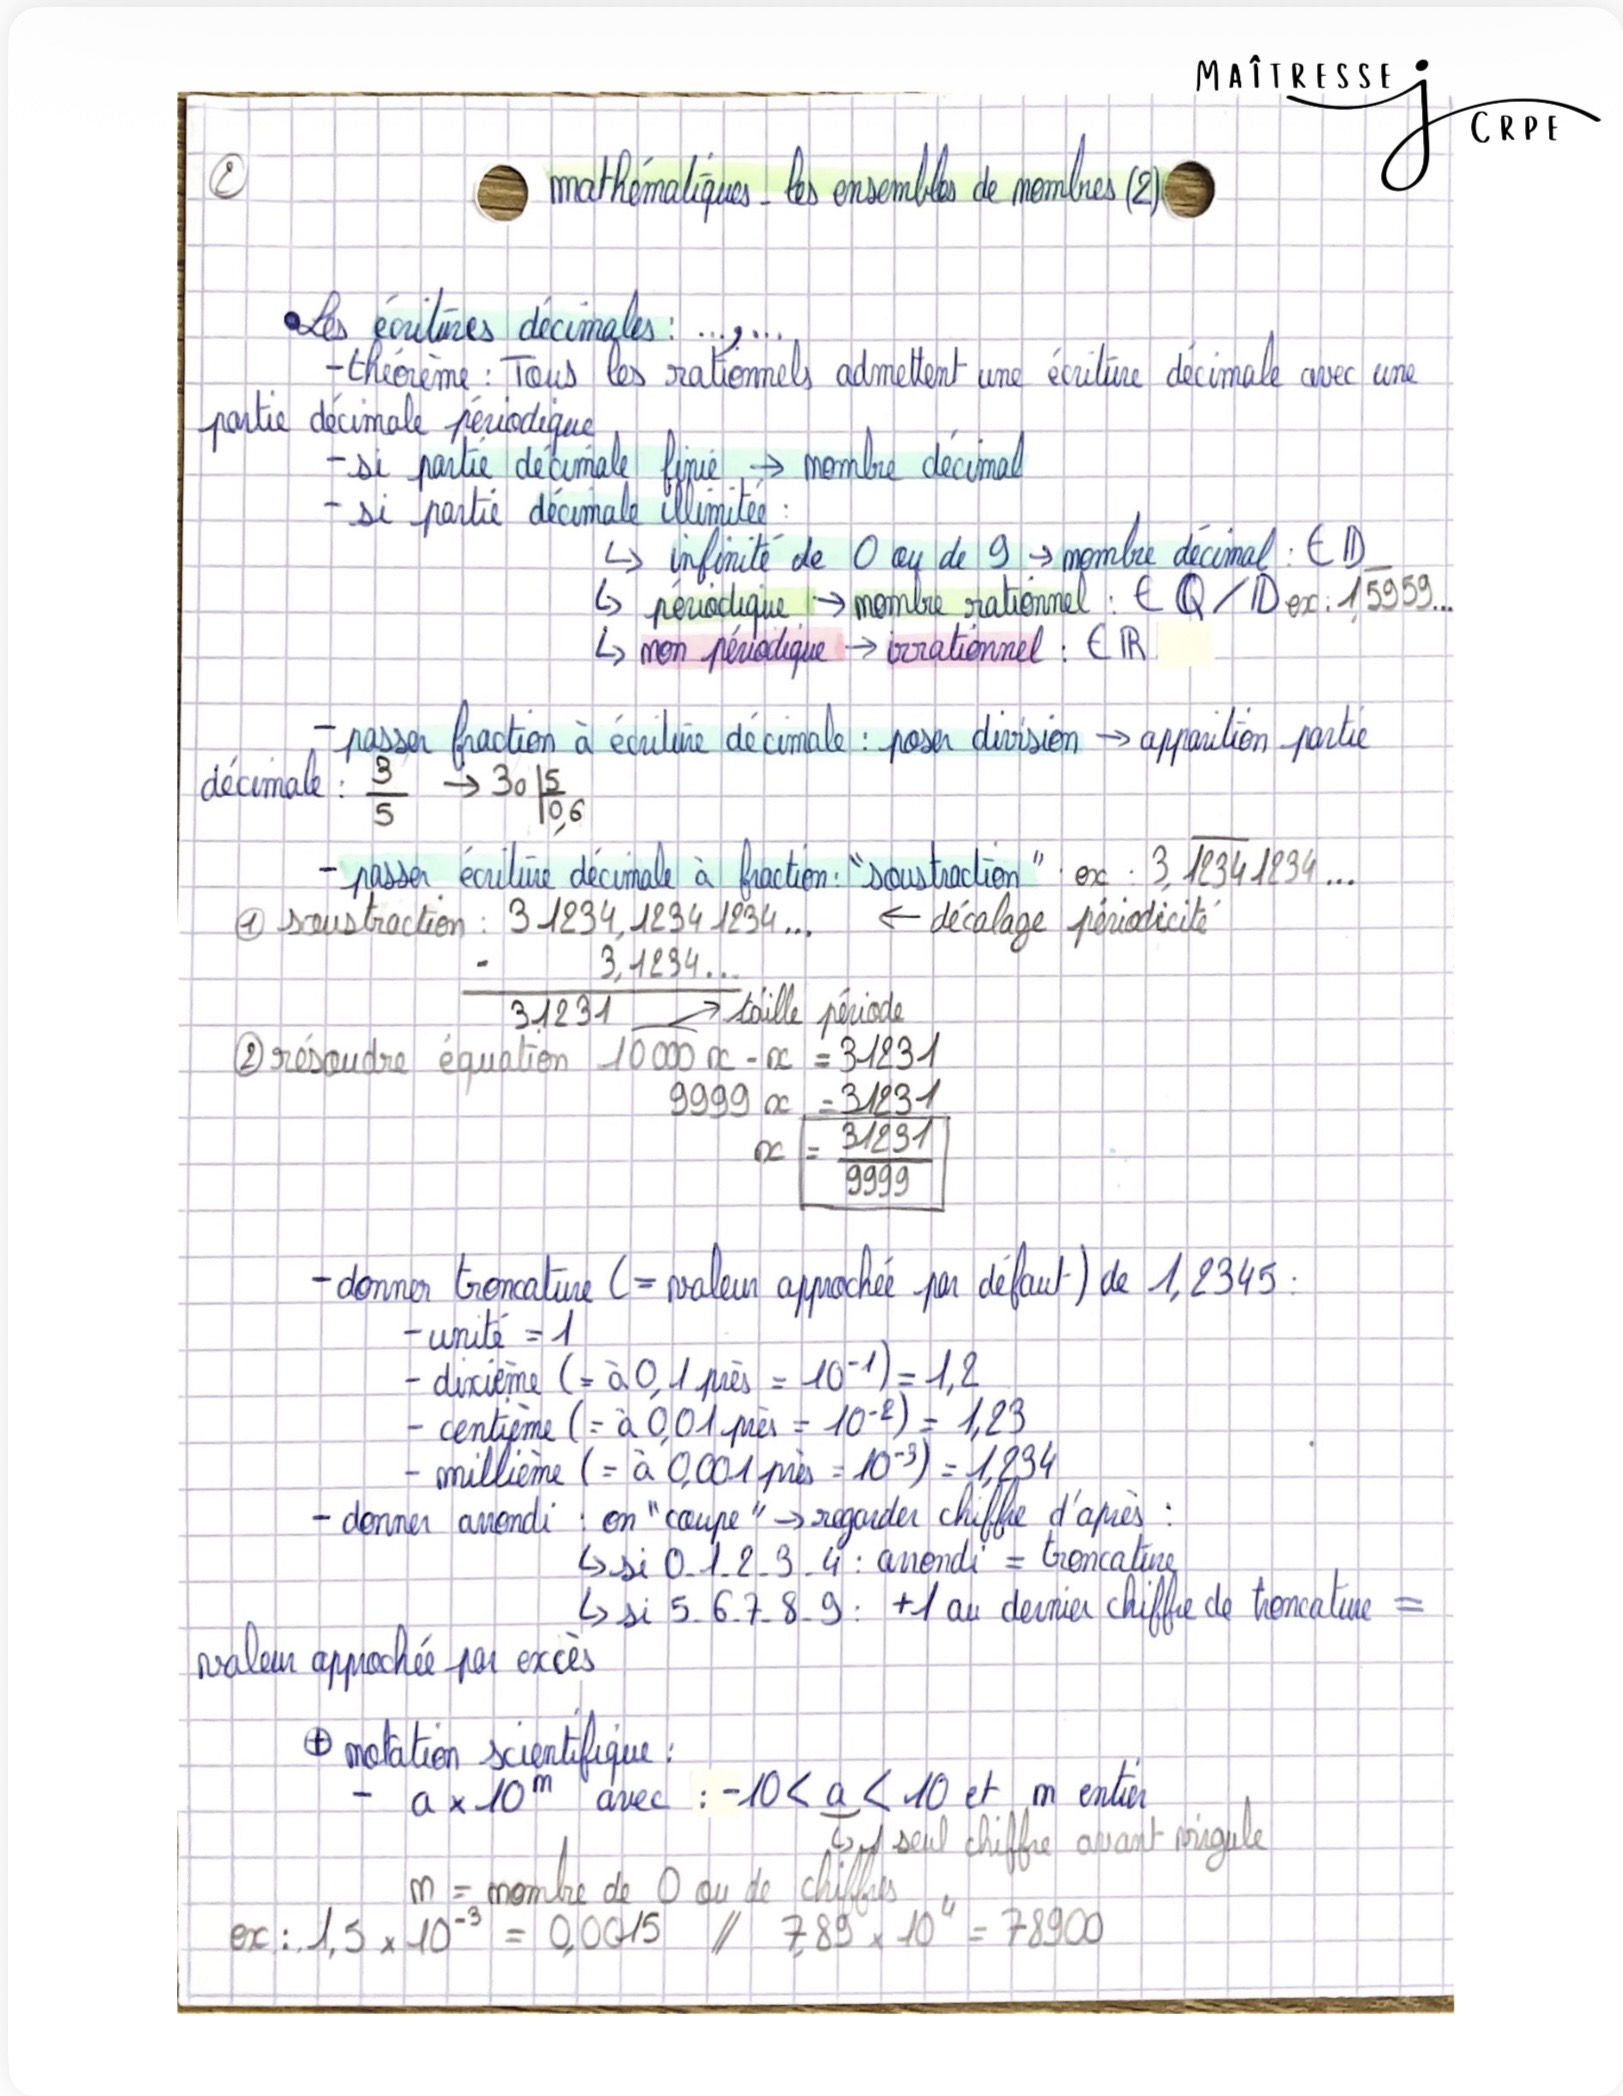 MAÎTRESSE J CRPE
②
mathématiques - les ensembles de nombres (2)
• Les écritures décimales : ...,...
- théorème : Tous les rationnels admettent une écriture décimale avec une
partie décimale périodique
- si partie décimale finie → nombre décimal
- si partie décimale illimitée :
↳ infinité de 0 ou de 9 → nombre décimal : ∈ ID
↳ périodique → nombre rationnel : ∈ ℚ / ID ex : 1,5959...
↳ non périodique → irrationnel : ∈ ℝ
- passer fraction à écriture décimale : poser division → apparition partie
décimale : 3/5 → 30 | 5
0,6
- passer écriture décimale à fraction : "soustraction" ex : 3,1234 1234...
① soustraction : 31234,1234 1234... ← décalage périodicité
- 3,1234...
31231 → taille période
② résoudre équation 10000 x - x = 31231
9999 x = 31231
x = 31231/9999
- donner troncature (= valeur approchée par défaut) de 1,2345 :
- unité = 1
- dixième (= à 0,1 près = 10⁻¹) = 1,2
- centième (= à 0,01 près = 10⁻²) = 1,23
- millième (= à 0,001 près = 10⁻³) = 1,234
- donner arrondi : on "coupe" → regarder chiffre d'après :
↳ si 0-1-2-3-4 : arrondi = troncature
↳ si 5-6-7-8-9 : +1 au dernier chiffre de troncature =
valeur approchée par excès
⊕ notation scientifique :
- a × 10ⁿ avec : -10 < a < 10 et n entier
↳ 1 seul chiffre avant virgule
n = nombre de 0 ou de chiffres
ex : 1,5 × 10⁻³ = 0,0015 // 7,89 × 10⁴ = 78900